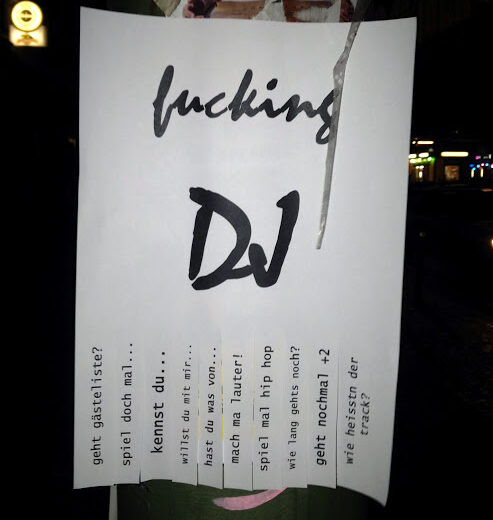 fucking
DJ
geht gästeliste?
spiel doch mal...
kennst du...
willst du mit mir...
hast du was von...
mach ma lauter!
spiel mal hip hop
wie lang gehts noch?
geht nochmal +2
wie heisstn der
track?